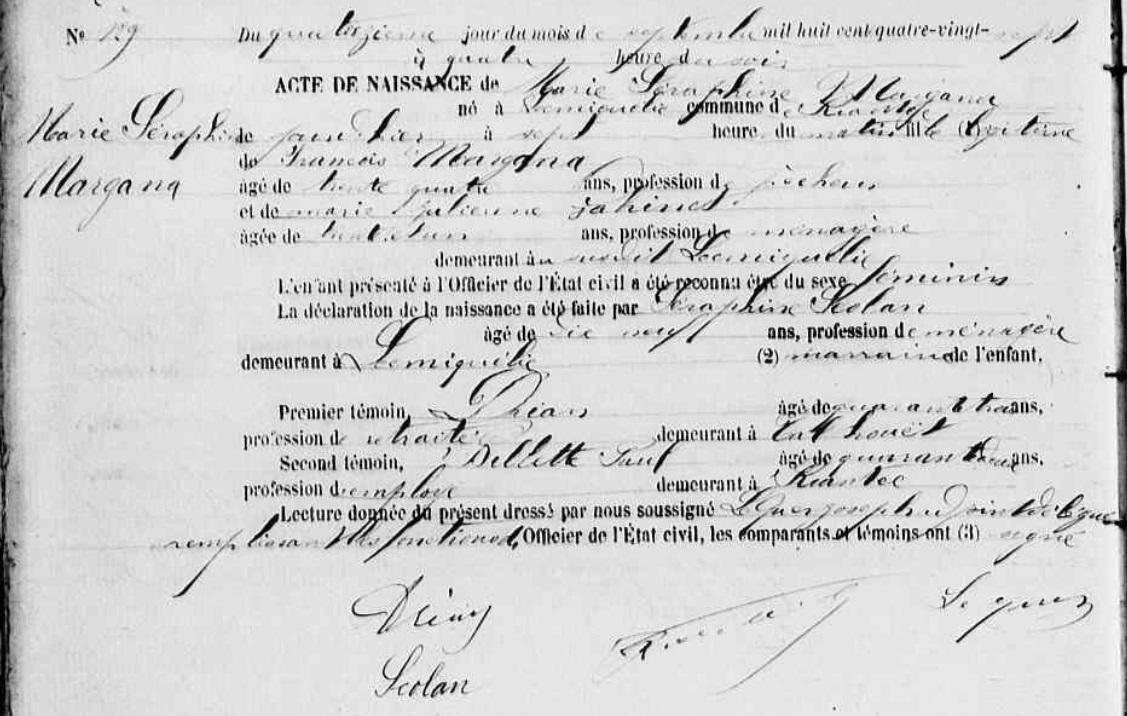 N° 129 Du quatorzième jour du mois de septembre mil huit cent quatre-vingt-sept
à quatre heure du soir
ACTE DE NAISSANCE de Marie Séraphine Margana
né à Locmiquélic commune de Riantec
Marie Séraphine jour d'hier à sept heure du matin fille (1) légitime
de François Margana
Margana âgé de trente quatre ans, profession de pêcheur
et de marie Julienne Jahines
âgée de trente et un ans, profession de ménagère
demeurant au dit Locmiquélic
L'enfant présenté à l'Officier de l'État civil a été reconnu être du sexe féminin
La déclaration de la naissance a été faite par Séraphine Scolan
âgé de dix neuf ans, profession de ménagère
demeurant à Locmiquélic (2) marraine de l'enfant.
Premier témoin, Dréan âgé de quarante trois ans,
profession de retraité demeurant à
Second témoin, Paul âgé de quarante deux ans,
profession d'employé demeurant à Riantec
Lecture donnée du présent dressé par nous soussigné Le Quer Joseph adjoint délégué
remplissant les fonctions d'Officier de l'État civil, les comparants et témoins ont (3) signé
Dréan Le quer
Scolan